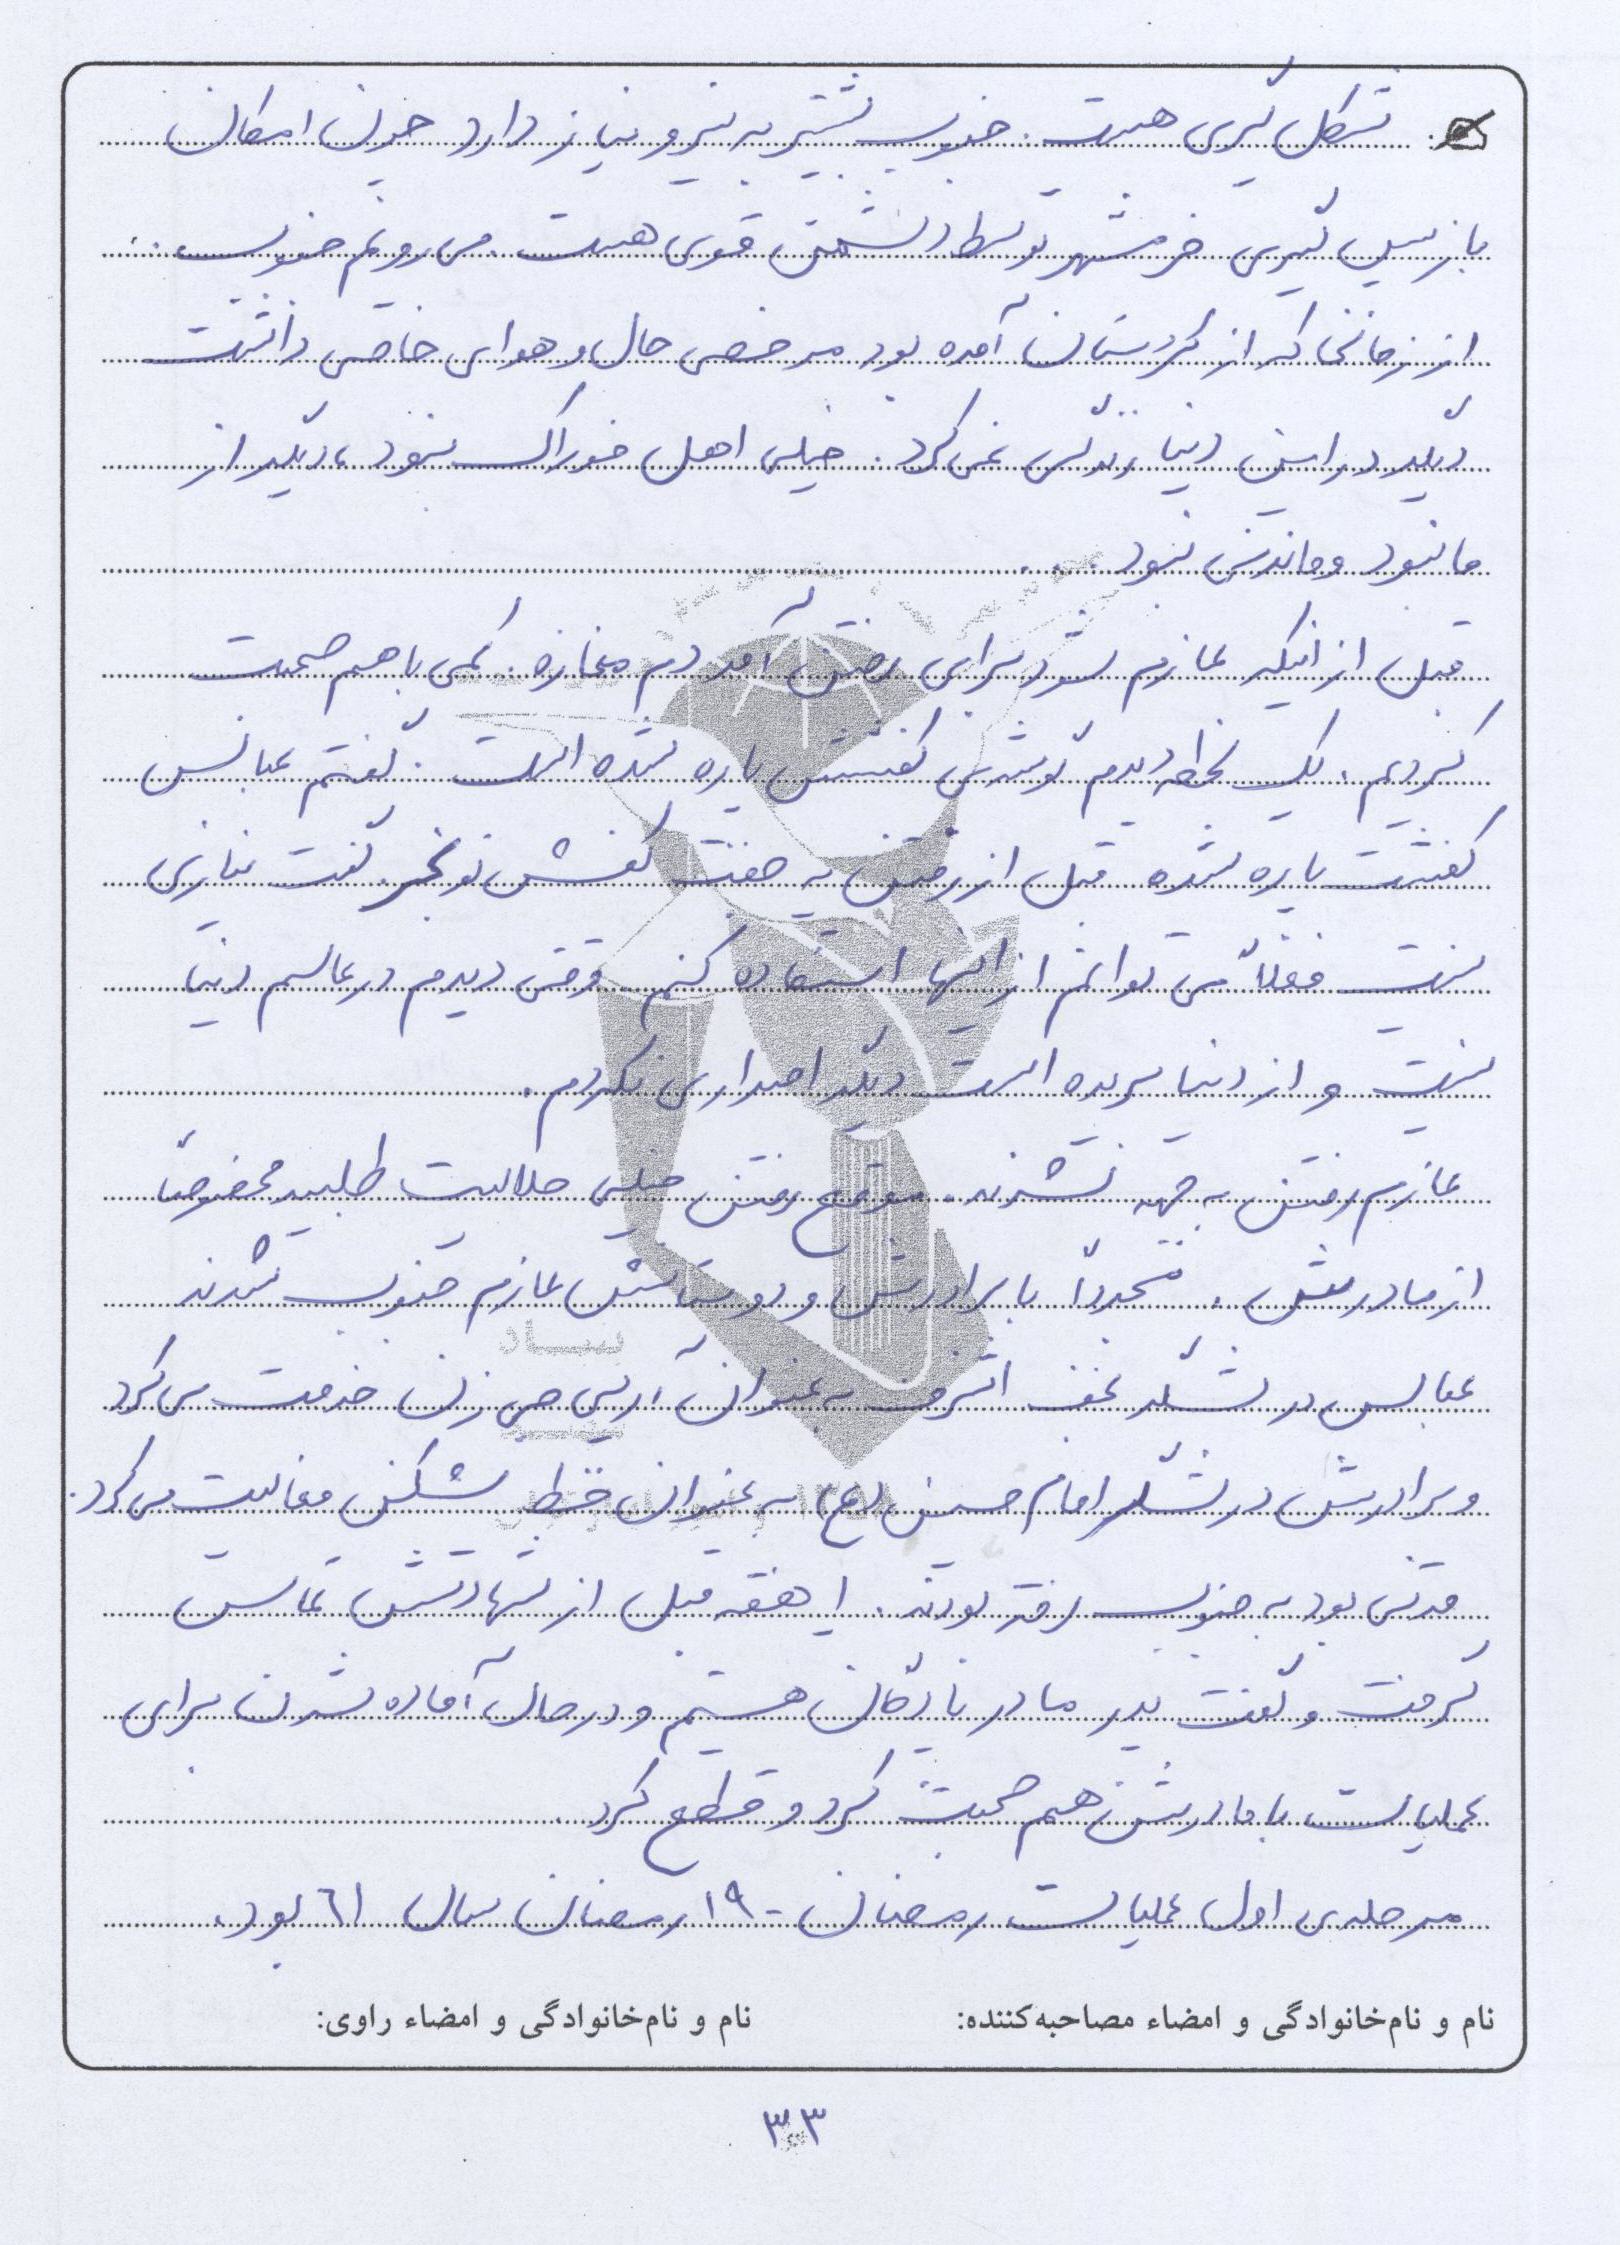 شکل گیری هست. جنوب بیشتر به نیرو نیاز دارد چون امکان
بازپس گیری خرمشهر توسط دشمن قوی هست. می رونم جنوب.
از زمانی که از کردستان آمده بود مرخصی حال و هوای خاصی داشت
دیگر در این دنیا زندگی نمی کرد. خیلی اهل خوراک نبود، دیگر از
ما نبود و ماندنی نبود...
قبل از اینکه عازم شود برای رفتن آمد دم مغازه. کمی با هم صحبت
کردیم. یک لحظه دیدم گوشه ی کفشش پاره شده است. گفتم عباس
کفشت پاره شده قبل از رفتن یه جفت کفش نو بخر. گفت نیازی
نیست فعلاً می توانم از اینها استفاده کنم. وقتی دیدم در عالم دنیا
نیست و از دنیا بریده است دیگر اصراری نکردم.
عازم رفتن به جبهه شدند. موقع رفتن خیلی حلالیت طلبید مخصوصاً
از مادرش. مجدداً با برادرش و دوستانش عازم جنوب شدند
عباس در لشگر نجف اشرف به عنوان آرپی جی زن خدمت می کرد
و برادرش در لشگر امام حسین (ع) به عنوان خط شکن فعالیت می کرد.
مدتی بود به جنوب رفته بودند. ۱ هفته قبل از شهادتش تماس
گرفت و گفت پدر ما در پادگان هستیم و در حال آماده شدن برای
عملیات با مادرش هم صحبت کرد و قطع کرد.
مرحله ی اول عملیات رمضان - ۱۹ رمضان سال ۶۱ بود.
نام و نام‌خانوادگی و امضاء مصاحبه‌کننده: نام و نام‌خانوادگی و امضاء راوی:
۳۳